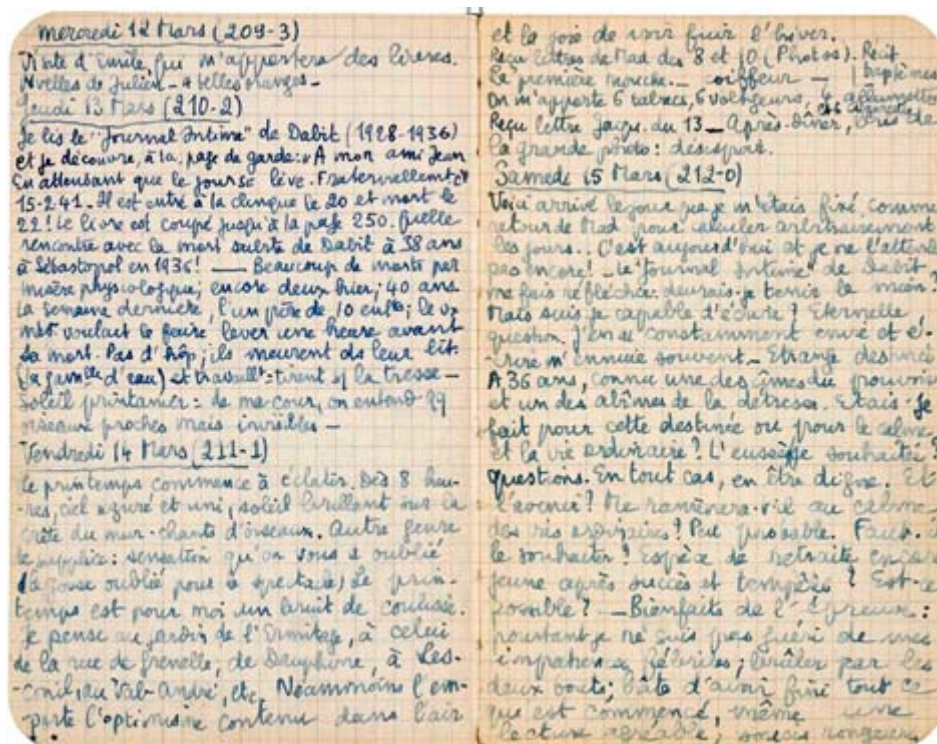 Mercredi 12 Mars (209-3)
Visite d'Emile, qui m'apportera des livres.
Nvelles de Julien - 4 belles oranges -
Jeudi 13 Mars (210-2)
Je lis le "Journal Intime" de Dabit (1928-1936)
et je découvre, à la page de garde: "A mon ami Jean
En attendant que le jour se lève. Fraternellement
15-2-41. Il est entré à la clinique le 20 et mort le
22! Le livre est coupé jusqu'à la page 250. Quelle
rencontre avec la mort subite de Dabit à 38 ans
à Sébastopol en 1936! — Beaucoup de morts par
misère physiologique; encore deux hier, 40 ans
la semaine dernière, l'un père de 10 enfts; le
voulait le faire lever une heure avant
sa mort. Pas d'hôp; ils meurent ds leur lit.
d'eau) et travaillt: tirent s/ la tresse —
Soleil printanier: de ma cour, on entend qq
oiseaux proches mais invisibles —
Vendredi 14 Mars (211-1)
Le printemps commence à éclater. Dès 8 heu-
-res, ciel azuré et uni, soleil brillant sur la
crête du mur - chants d'oiseaux. Autre genre
de supplice: sensation qu'on vous a oublié
(la gosse oublié pour le spectacle) Le prin-
temps est pour moi un bruit de coulisse.
Je pense au jardin de l'Ermitage, à celui
de la rue de Grenelle, de Dauphine, à Les-
-conil, au Val-André, etc. Néammoins l'em-
porte l'optimisme contenu dans l'air
et la joie de voir finir l'hiver.
Reçu lettres de Mad des 8 et 10 (Photos). Récit
La première mouche. — coiffeur — baptêmes
On m'apporte 6 tabacs, 6 voltigeurs, allumettes
Reçu lettre Jacqu. du 13 — Après-dîner, de
la grande photo: désespoir.
Samedi 15 Mars (212-0)
Voici arrivé le jour que je m'étais fixé comme
retour de Mad pour calculer arbitrairement
les jours.. C'est aujourd'hui et je ne l'attends
pas encore! - Le "Journal Intime" de Dabit
me fais réfléchir: devrais-je tenir le mien?
Mais suis-je capable d'écrire? Eternelle
question. J'en ai constamment envie et é-
-crire m'ennuie souvent — Etrange destinée
A 36 ans, connu une des cîmes du pouvoir
et un des abîmes de la détresse. Etais-je
fait pour cette destinée ou pour le calme
et la vie ordinaire? L'eussé-je souhaitée?
questions. En tout cas, en être digne. Et
l'avenir? Me ramènera-t-il au calme
des vies ordinaires? Peu probable. Faut-il
le souhaiter? Espèce de retraite encore
jeune après succès et tempête? Est-ce
possible? — Bienfaits de l'épreuve:
pourtant je ne suis pas guéri de mes
brûler par les
deux bouts; hâte d'avoir fini tout ce
qui est commencé, même une
lecture agréable, soucis rongeurs